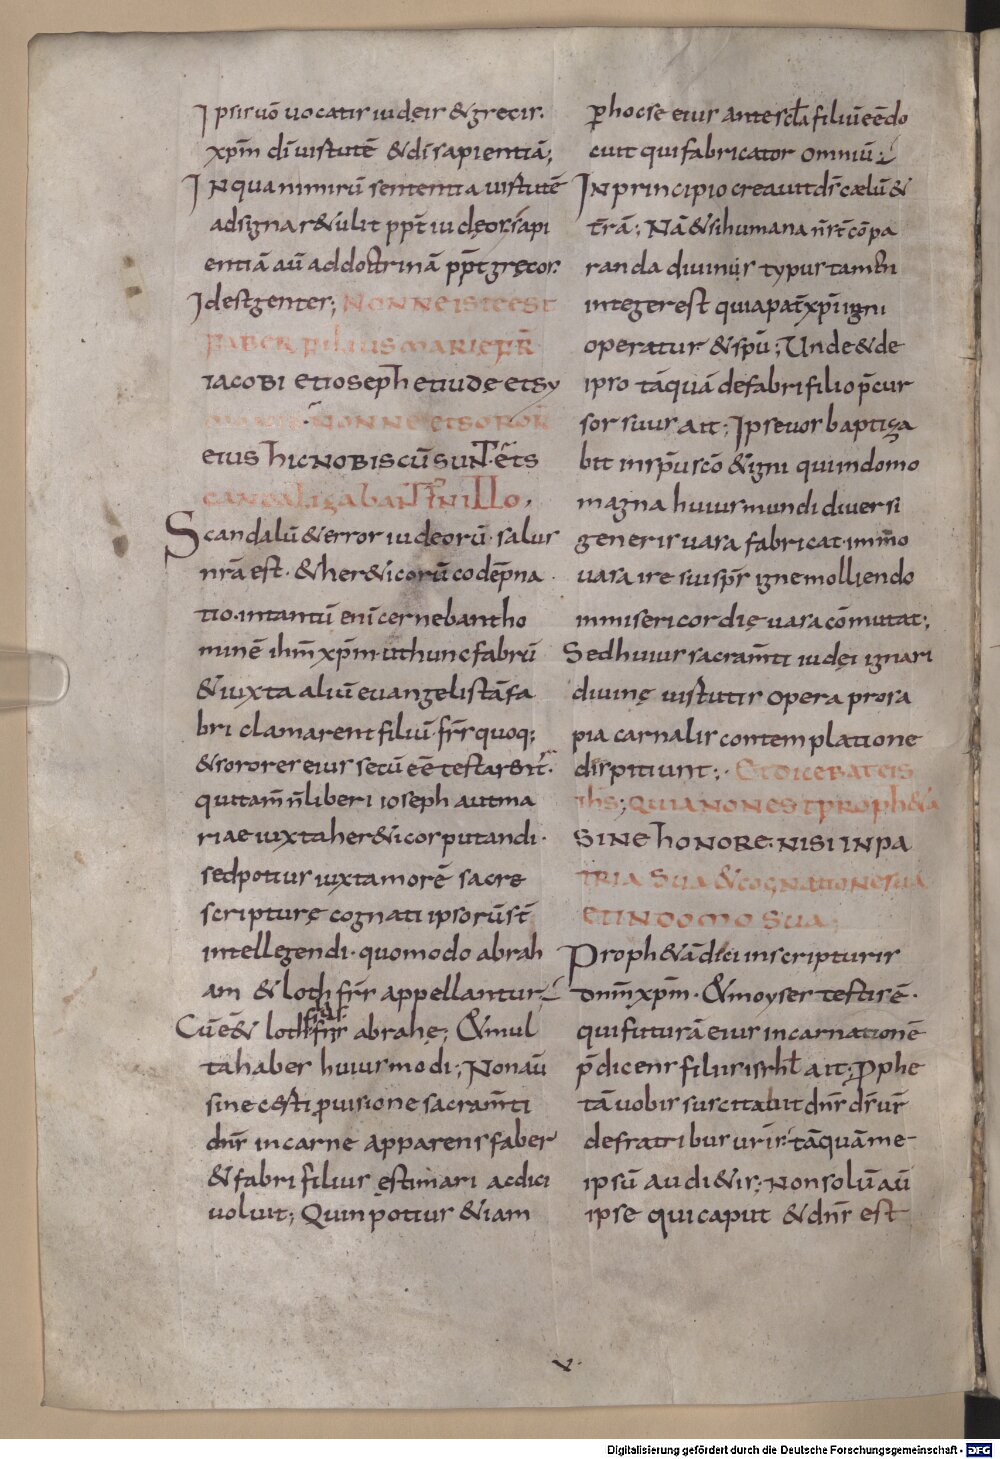 Ipsis uō uocatis iudęis &grecis.
xp̄m dī uirtutē &dī sapientiā;
In qua nimirū sententia uirtutē
ad signa r&ulit pp̄t iudęos; sapi
entiā aū ad doctrinā pp̄t gręcos.
Idest gentes; NONNE ISTE EST
FABER FILIUS MARIE FR̄
IACOBI ET IOSEPH ET IUDĘ ET SY
MONIS. NONNE ET SOROR̄
EIUS HIC NOBISCŪ SUNT. ET S
CANDALIZABANT̄ IN ILLO.
Scandalū & error iudeorū. salus
nr̄a est. & her&icorū codēpna
tio. intantū enī cernebant ho
minē ihm̄ xp̄m. ut hunc fabrū
& iuxta aliū euangelistā fa
bri clamarent filiū. fr̄s quoq;
& sorores eius secū eē testarent̄.
qui tam̄ n̄ liberi ioseph aut ma
riae iuxta her&icos putandi.
sed potius iuxta morē sacre
scripturę cognati ipsorū st̄
intellegendi. quomodo abrah
am & loth fr̄s appellantur;
Cū eēt loth fr̄is abrahę; & mul
ta habes huiusmodi; Non aū
sine certi ꝓuisione sacram̄ti
dn̄s in carne apparens faber
& fabri filius ęstimari ac dici
uoluit; Quin potius & iam
ꝑ hoc se eius ante scl̄a filiū eē do
cuit qui fabricator omniū;
In principio creauit dś cælū &
tr̄ā; Nā & si humana n̄ st̄ cōpa
randa diuinis typus tam̄
integer est quia pat̄ xp̄i igni
operatur & spū; Unde & de
ipso tāquā de fabri filio p̄cur
sor suus ait; Ipse uos baptiza
bit in sp̄u scō & igni qui in domo
magna huius mundi diuersi
generis uasa fabricat. immo
uasa ire sui sp̄s igne molliendo
in misericordię uasa cōmutat;
Sed huius sacram̄ti iudęi ignari
diuinę uirtutis opera prosa
pia carnalis contemplatione
dispitiunt; ET DICEBAT EIS
IHS; QUIA NON EST PROPH&A
SINE HONORE. NISI IN PA
TRIA SUA & COGNATIONE SUA
ET IN DOMO SUA;
Proph&ā dici in scripturis
dnm̄ xp̄m. & moyses testis ē.
qui futurā eius incarnationē
p̄dicens filiis isrhl̄ ait; Prophe
tā uobis suscitabit dn̄s ds̄ ur̄
de fratribus uris̄ tāquā me
ipsū audi&is; Non solū aū
ipse qui caput & dn̄s est
v.
Digitalisierung gefördert durch die Deutsche Forschungsgemeinschaft - DFG